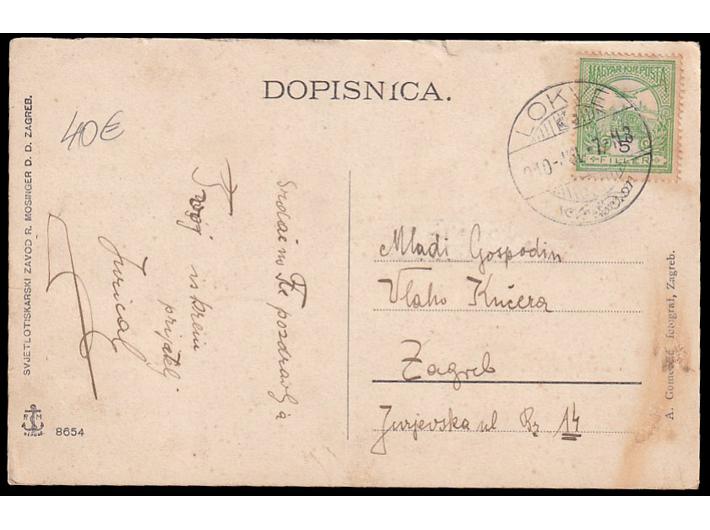 DOPISNICA.
40€
SVJETLOTISKARSKI ZAVOD R. MOSINGER D. D. ZAGREB.
8654
Srdačno Te pozdravlja
Tvoj iskreni
prijatelj
Juricaf
MAGYAR KIR. POSTA
5
FILLÉR
LOKVE
910
Mladi Gospodin
Vlaho Kučera
Zagreb
Jurjevska ul Br 14
A. Gomerčić fotograf, Zagreb.